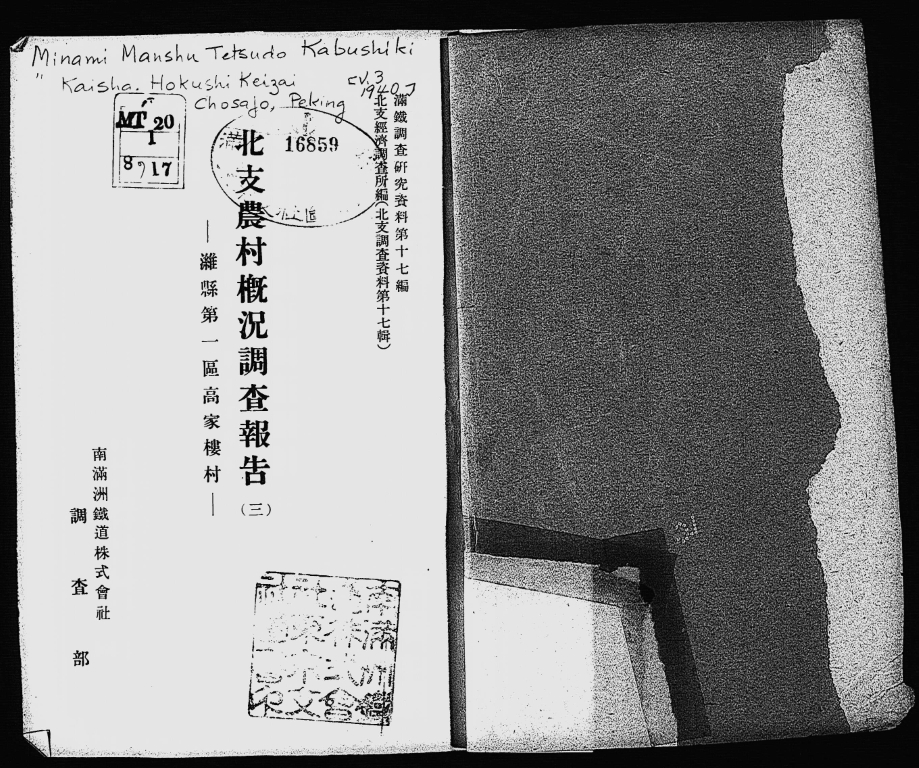 Minami Manshu Tetsudo Kabushiki
" Kaisha. Hokushi Keizai
Chosajo, Peking
v.3
1940 J
MT 20
1
8 17
16859
滿鐵調査硏究資料第十七編
北支經濟調査所編(北支調査資料第十七輯)
北支農村槪況調査報告(三)
―濰縣第一區高家樓村―
南滿洲鐵道株式會社
調査部